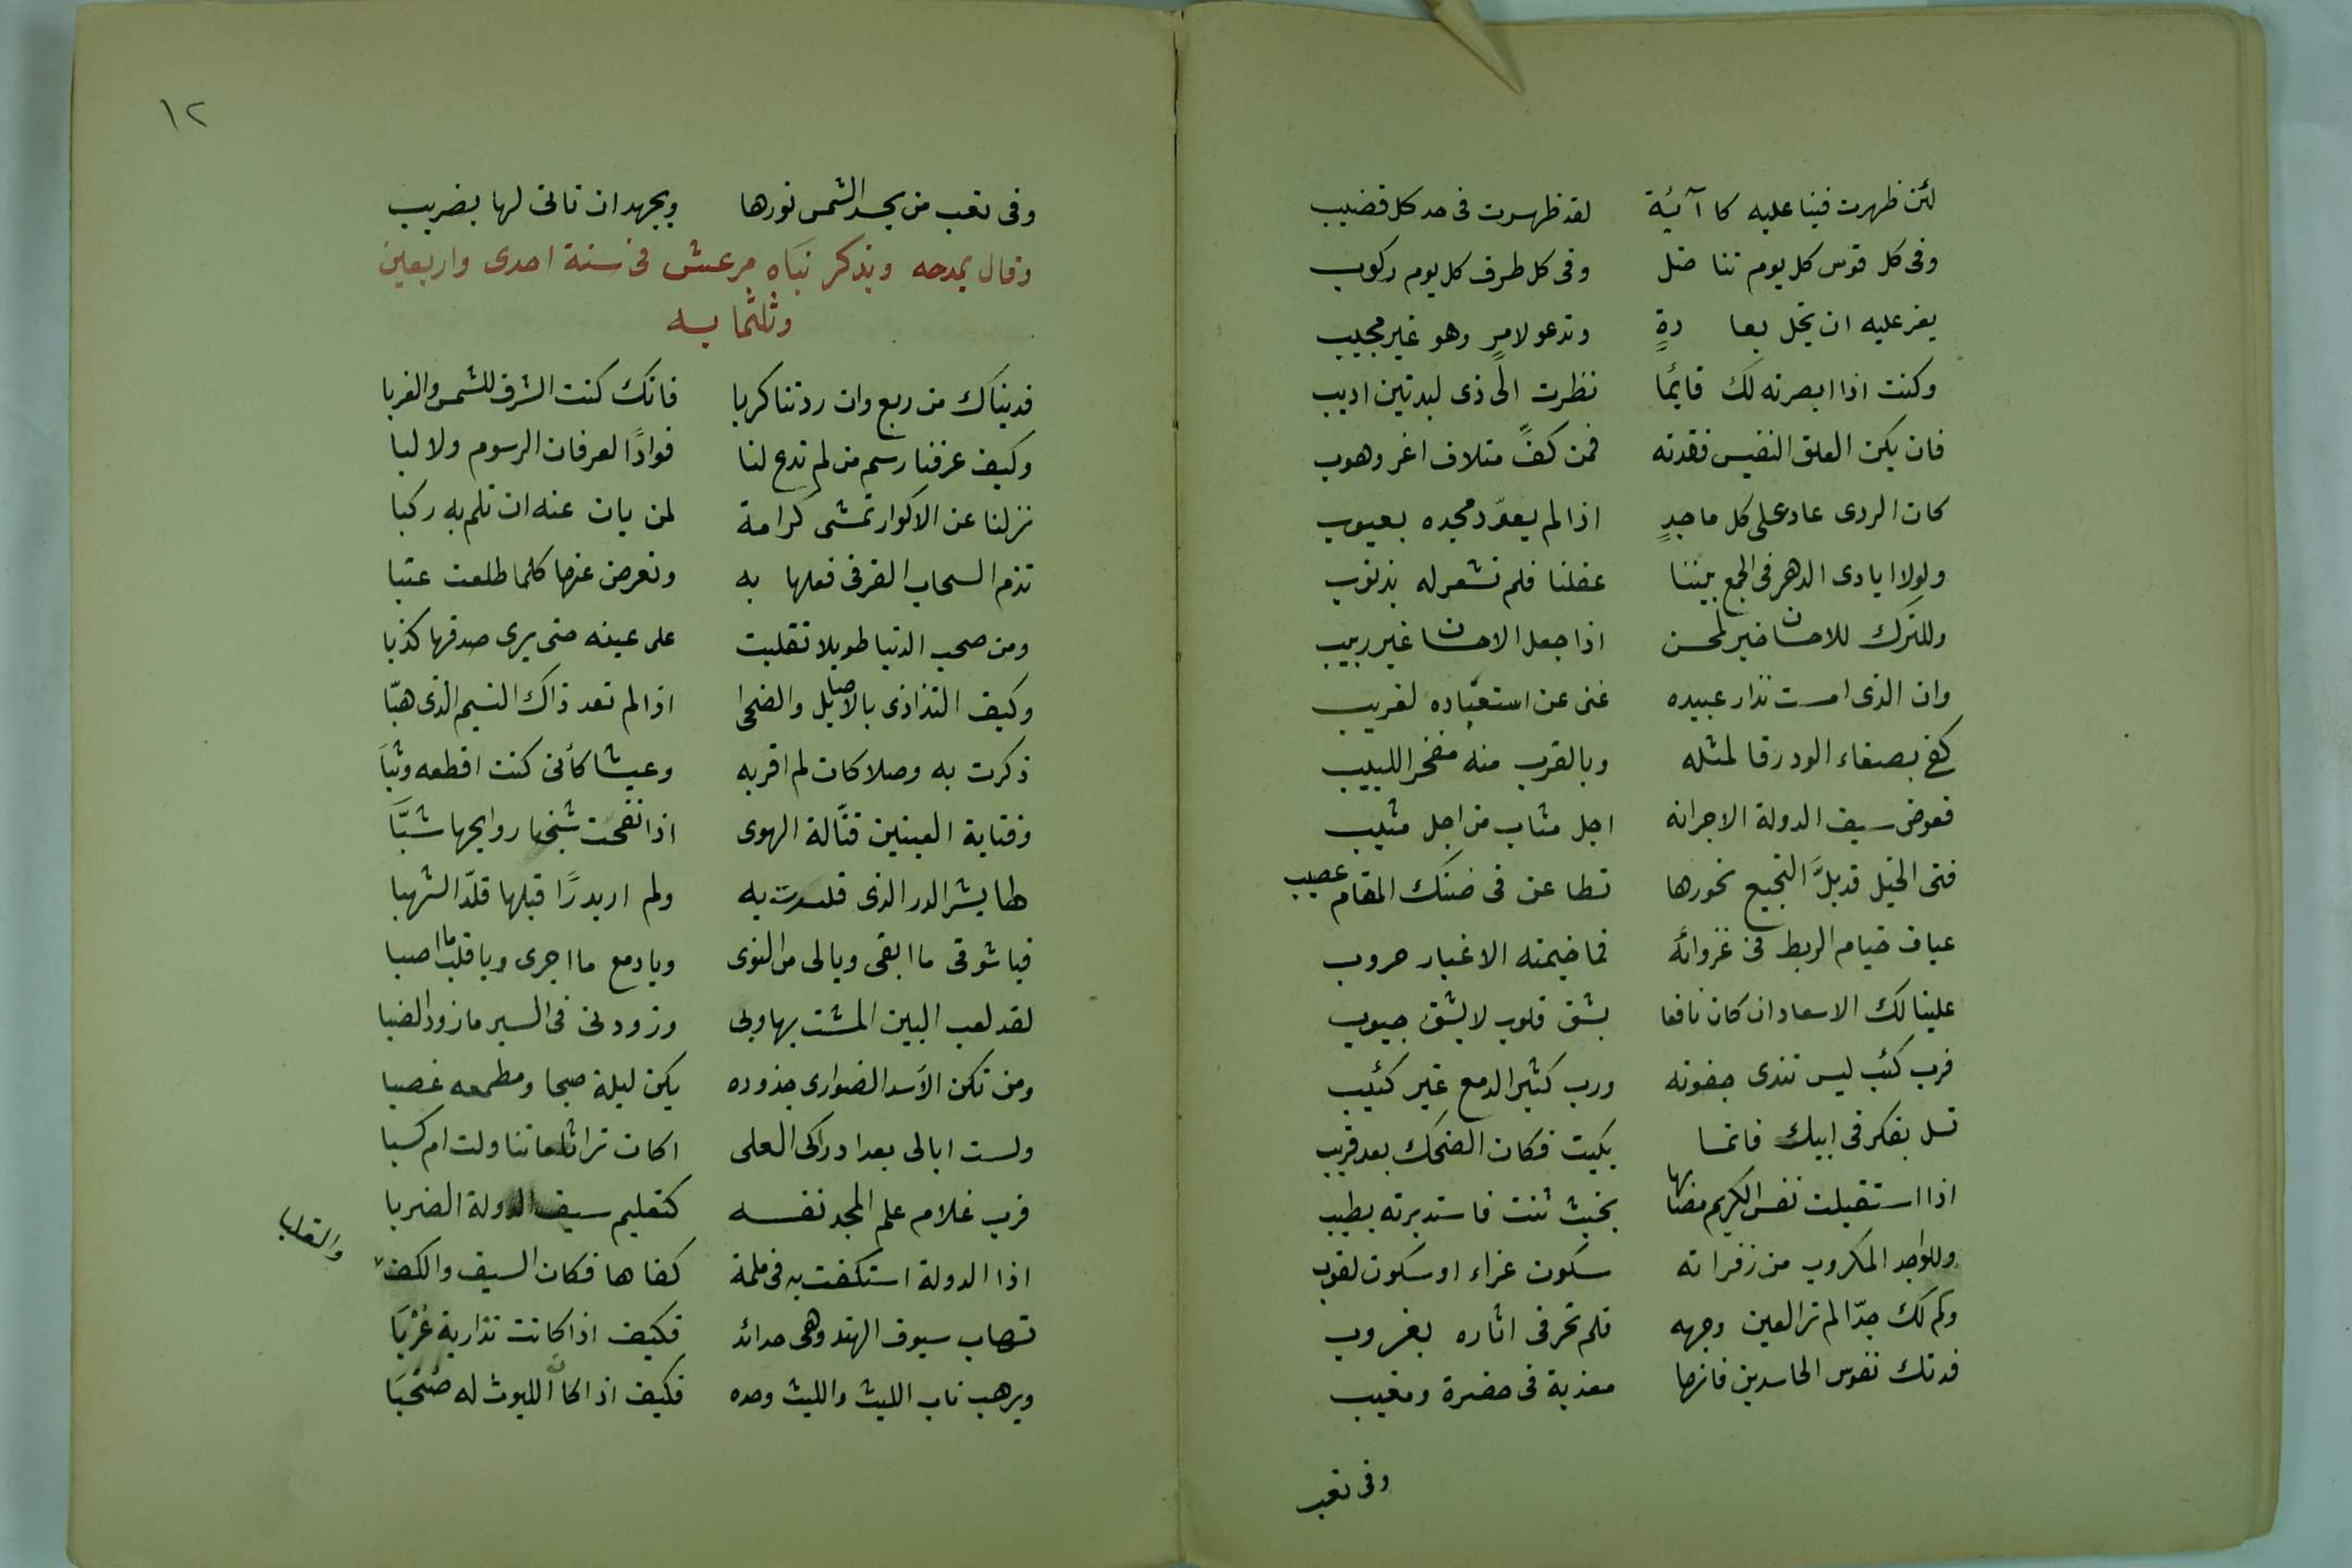 لئن ظهرت فينا عليه كاآئبة لقد ظهرت فى حد كل قضيب
وفى كل قوس كل يوم تناضل وفى كل طرف كل يوم ركوب
يعز عليه ان يخل بعادةٍ وتدعو لامرٍ وهو غير مجيب
وكنت اذا ابصرته لك قايئما نظرت الى ذى لبدتين اديب
فان يكن العلق النفيس فقدته فمن كفّ متلاف اغر وهوب
كان الردى عاد على كل ماجدٍ اذا لم يعوّد مجده بعيوب
ولولا ايادى الدهر فى الجمع بيننا غفلنا فلم نشعر له بذنوب
وللترك للاحسان خير لمحسن اذا جعل الاحسان غير ربيب
وان الذى امست نزار عبيده غنى عن استعباده لغريب
كفى بصفاء الود رقا لمثله وبالقرب منه مفخر اللبيب
فعوض سيف الدولة الاجر انه اجل مثاب من اجل مثيب
فتى الخيل قد بلّ النجيع نحورها تطاعن فى ضنك المقام عصيب
عياف خيام الربط فى غزواته فما خيمته الا غبار حروب
علينا لك الاسعاد ان كان نافعا بشق قلوب لا بشق جيوب
فرب كئب ليس تندى جفونه ورب كثير الدمع غير كئيب
تسل بفكر فى ابيك فانما بكيت فكان الضحك بعد قريب
اذا استقبلت نفس الكريم مصابها بخبث ثنت فاستدبرته بطيب
وللواجد المكروب من زفراته سكون عزاء او سكون لغوب
وكم لك جدّا لم تر العين وجهه فلم تجر فى اثاره بغروب
فدتك نفوس الحاسدين فانها معذبة فى حضرة ومغيب
وفى تعب
١٢
وفى تعب من يحسد الشمس نورها ويجهد ان تاتى لها بضريب
وقال يمدحه ويذكر بناه مرعش فى سنة احدى واربعين
وثلثمايه
فديناك من ربع وان زدتنا كربا فانك كنت الشرق للشمس والغربا
وكيف عرفنا رسم من لم تدع لنا فوادًا لعرفان الرسوم ولا لبا
نزلنا عن الاكوار تمشى كرامة لمن بان عنه ان نلم به ركبا
تذم السحاب الغر فى فعلها به ونعرض عنها كلما طلعت عتبا
ومن صحب الدنيا طويلا تقلبت على عينه حتى يرى صدقها كذبا
وكيف التذاذى بالاصايل والضحى اذا لم تعد ذاك النسيم الذى هبّا
ذكرت به وصلا كان لم افز به وعيشا كأنى كنت اقطعه وثبا
وفتاية العينين قتّالة الهوى اذا نفحت شيخا روايحها شبّا
لها بشر الدر الذى قلدت به ولم ار بدرًا قبلها قلّد الشهبا
فيا شوقى ما ابقى ويالى من النوى ويا دمع ما اجرى ويا قلب ما اصبا
لقد لعب البين المشت بها وبى وزودنى فى السير ما زود الضبا
ومن تكن الأسد الضوارى جدوده يكن ليله صبحا ومطمعه غصبا
ولست ابالى بعد ادراكى العلى اكان تراثا ما تناولت ام كسبا
فرب غلام علم المجد نفسه كتعليم سيف الدولة الضربا
اذا الدولة استكفت به فى ملمة كفاها فكان السيف والكف
والقلبا
تهاب سيوف الهند وهى حدائد فكيف اذا كانت نزارية غُرْبَا
ويرهب ناب الليث والليث وحده فكيف اذا كان الليوث له صَحْبَا